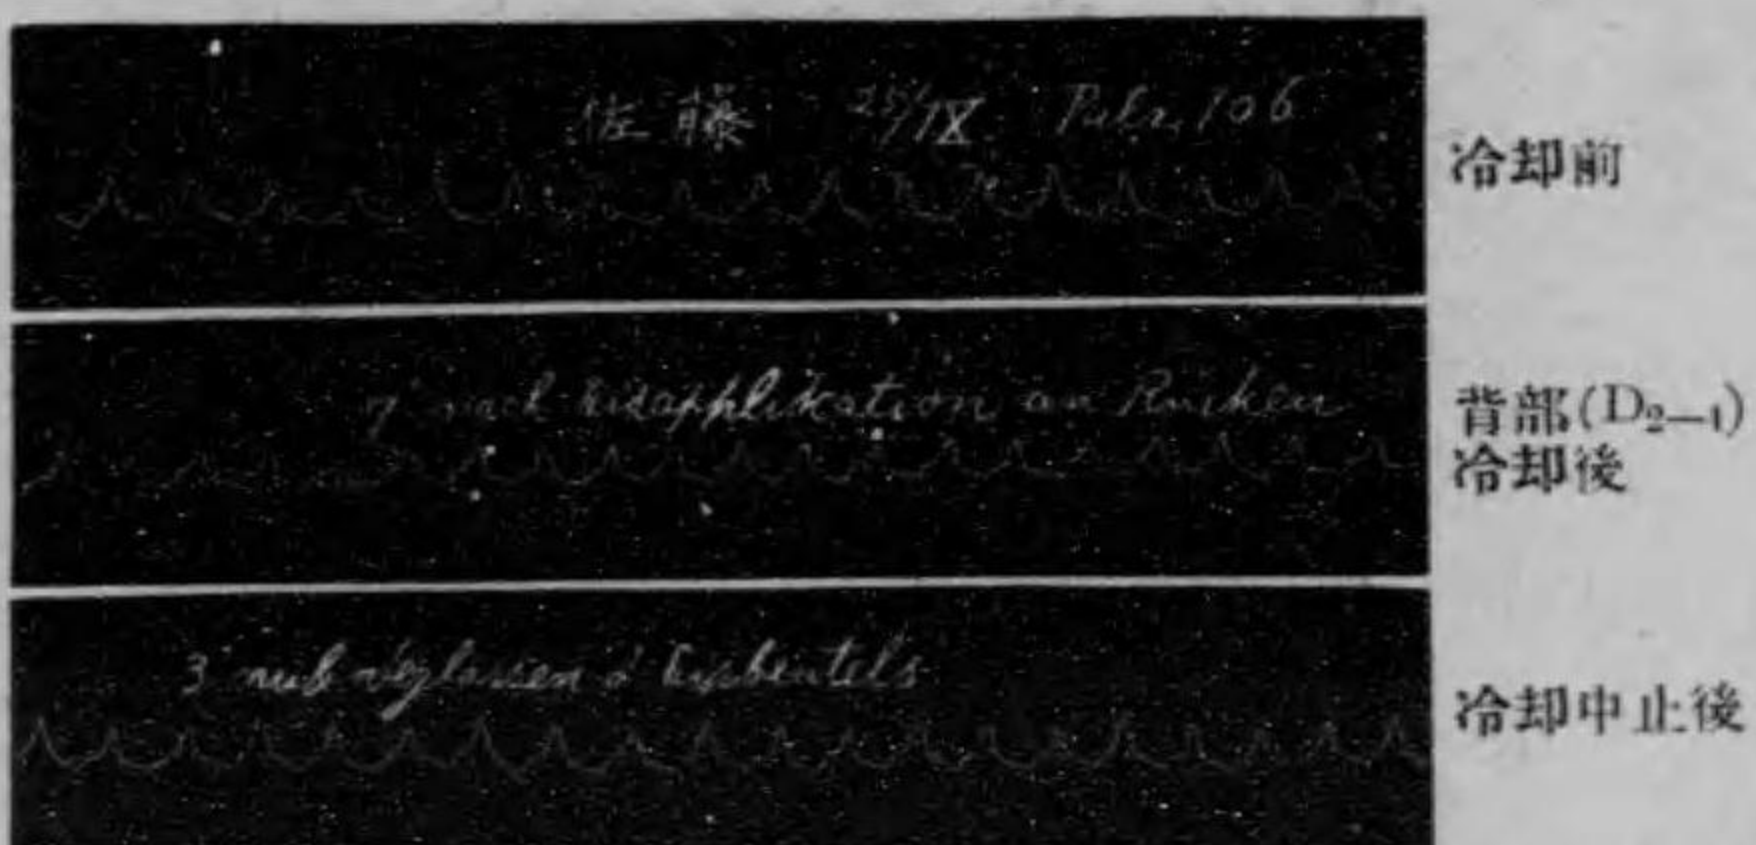 佐藤 25/IX Puls, 106
冷却前
7' nach Eisapplikation an Rücken
背部(D₂—₁)
冷却後
3' nach weglassen d Eisbeutels
冷却中止後